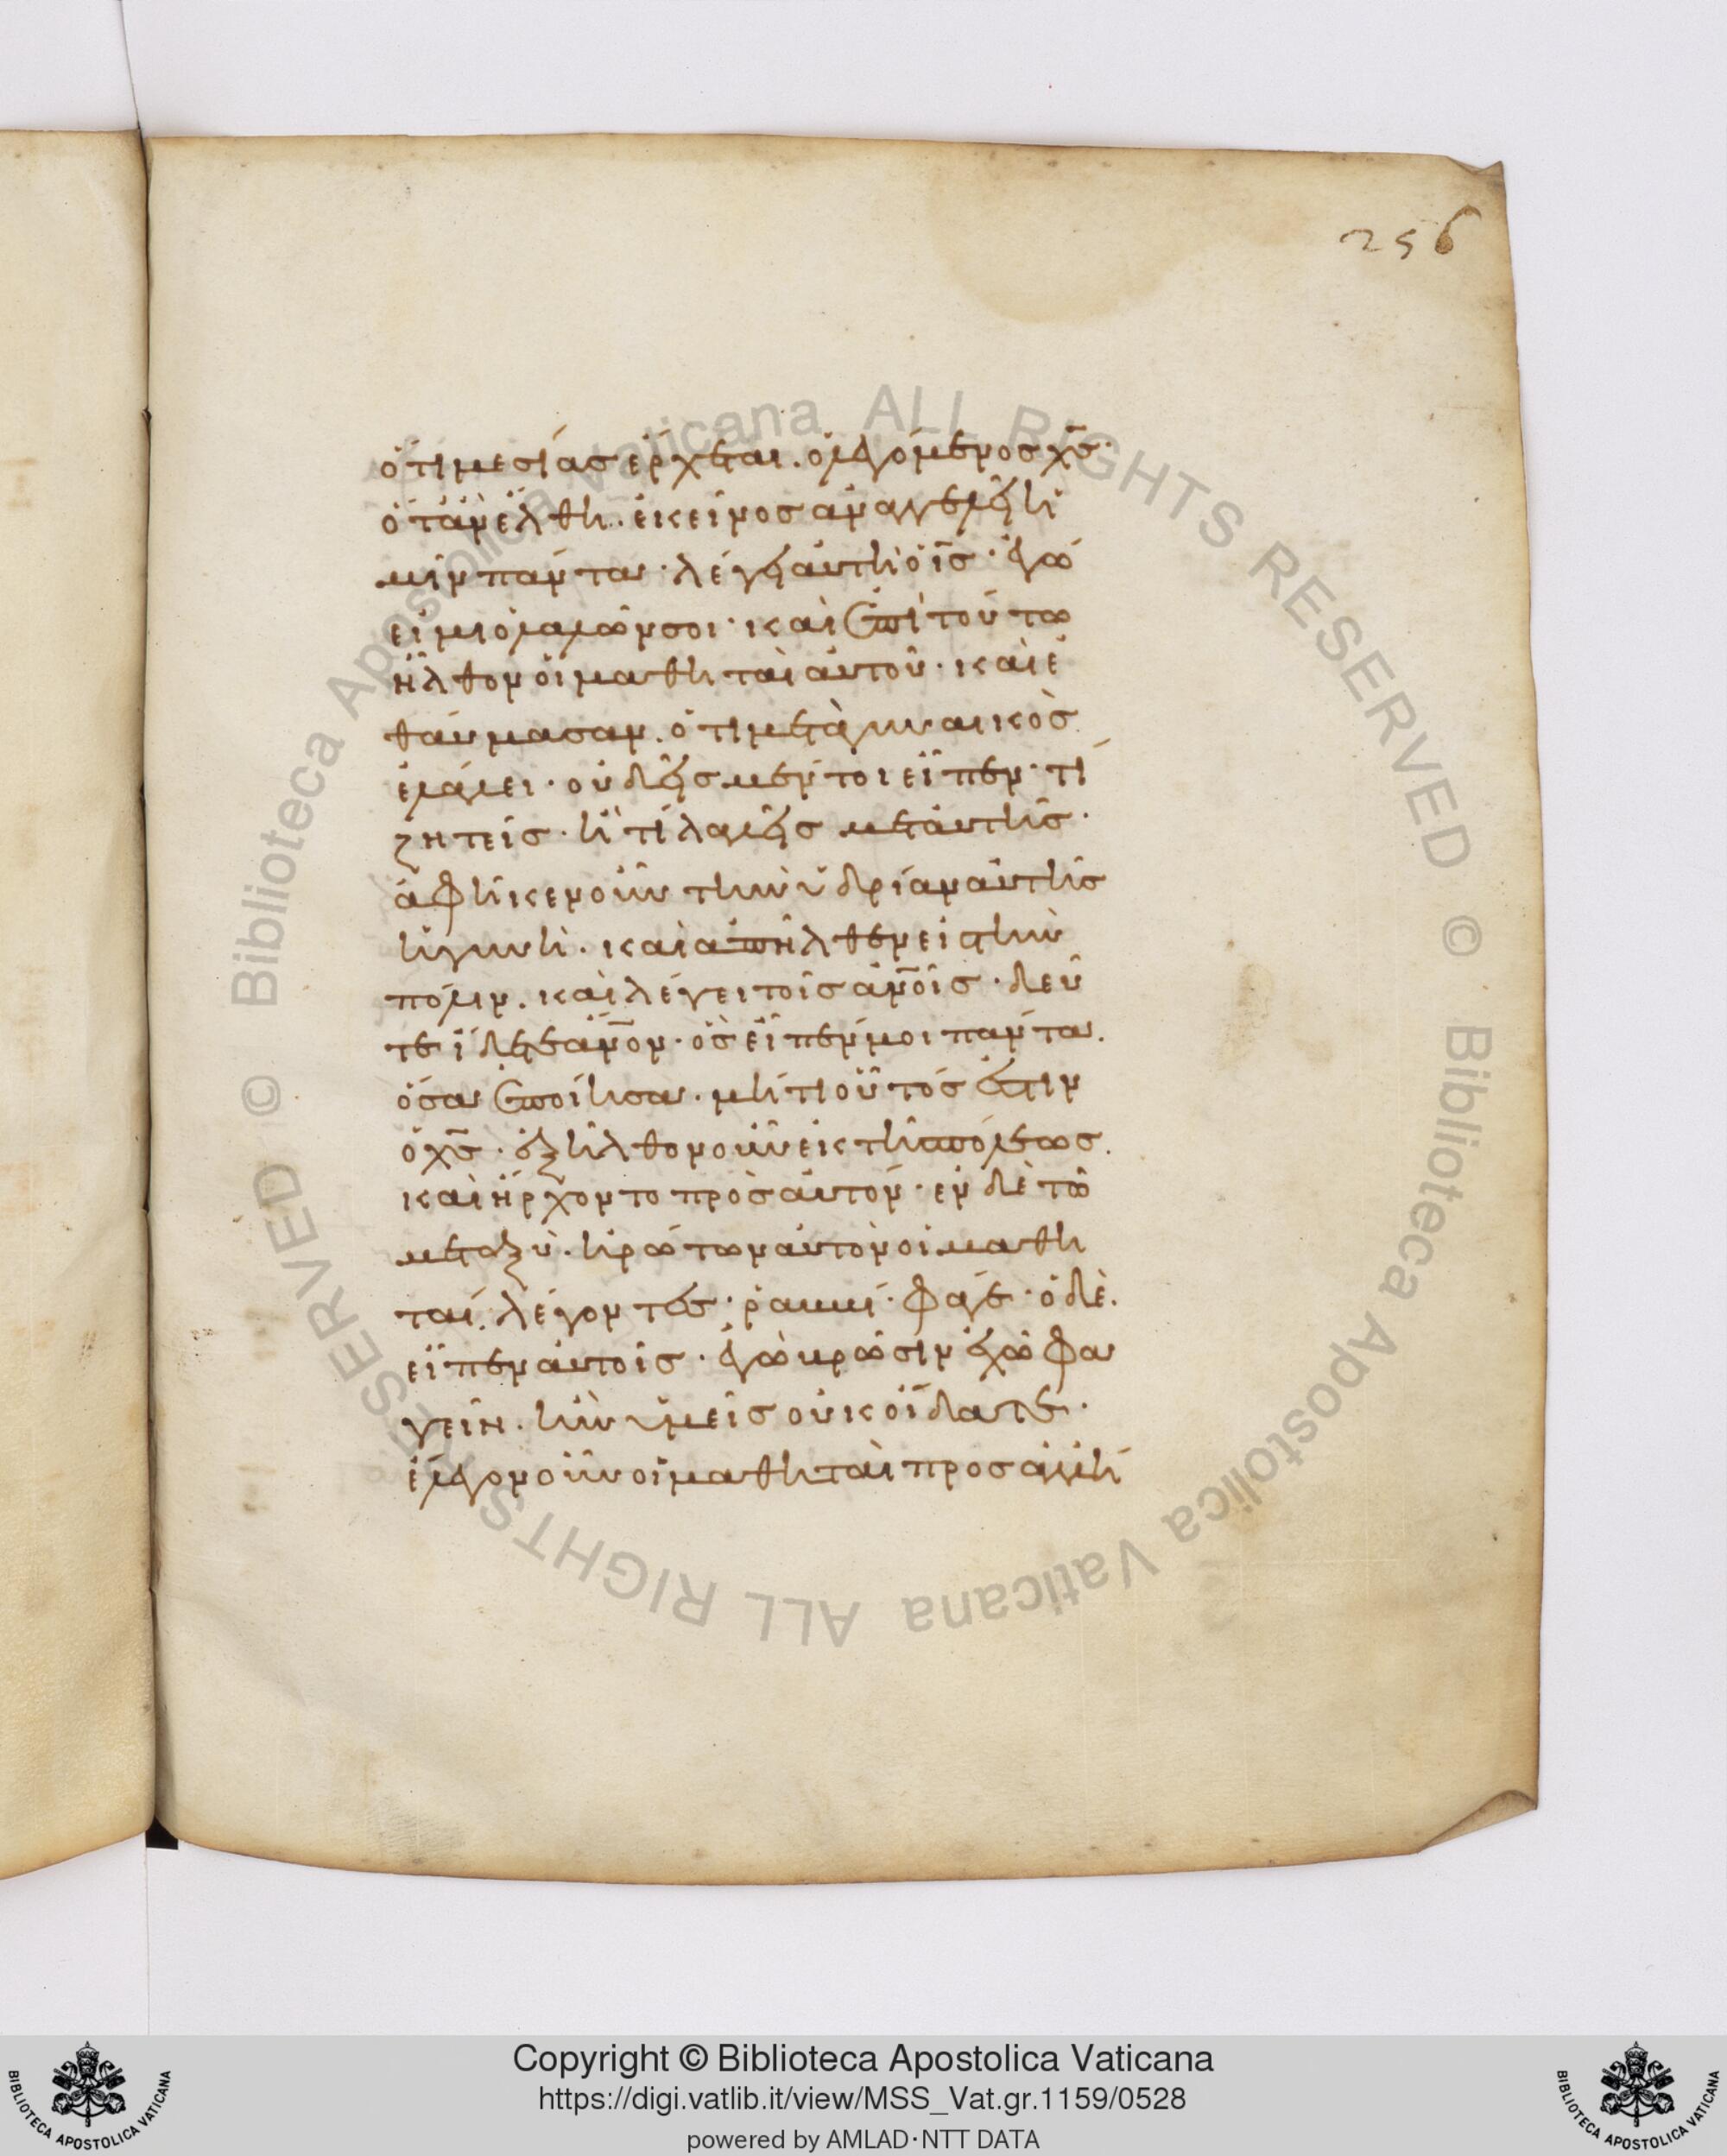 256
ὅτι μεσίας ἔρχεται. ὁ λεγόμενος χ̅ς̅·
ὅταν ἔλθη. ἐκεῖνος ἀναγγελεῖ ἡ
μῖν πάντα· λέγει αὐτῆ ὁ ι̅ς̅· ἐγώ
εἰμι ὁ λαλῶν σοι· καὶ ἐπὶ τούτω
ἦλθον οἱ μαθηταὶ αὐτοῦ· καὶ ἐ
θαύμασαν. ὅτι μετὰ γυναικὸς
ἐλάλει· οὐδεὶς μέντοι εἶπεν· τί
ζητεῖς· ἢ τί λαλεῖς μετ αὐτῆς·
ἀφῆκεν οὖν τὴν ὑδρίαν αὐτῆς
ἡ γυνὴ· καὶ ἀπῆλθεν εἰς τὴν
πόλιν. καὶ λέγει τοῖς α̅ν̅οις· δεῦ
τε ἴδετε α̅ν̅ον· ὃς εἶπέν μοι πάντα.
ὅσα ἐποίησα· μήτι οὗτός ἐστιν
ὁ χ̅ς̅· ἐξῆλθον οὖν ἐκ τῆς πόλεως.
καὶ ἤρχοντο πρὸς αὐτόν· ἐν δὲ τῶ
μεταξὺ· ἠρώτων αὐτὸν οἱ μαθη
ταί. λέγοντες· ῥαββί· φάγε· ὁ δὲ.
εἶπεν αὐτοῖς· ἐγὼ βρῶσιν ἔχω φα
γεῖν· ἣν ὑμεῖς οὐκ οἴδατε·
ἔλεγον οὖν οἱ μαθηταὶ πρὸς ἀλλή
Biblioteca Apostolica Vaticana ALL RIGHTS RESERVED ©
Biblioteca Apostolica Vaticana ALL RIGHTS RESERVED ©
Copyright © Biblioteca Apostolica Vaticana
https://digi.vatlib.it/view/MSS_Vat.gr.1159/0528
powered by AMLAD·NTT DATA
BIBLIOTECA APOSTOLICA VATICANA
BIBLIOTECA APOSTOLICA VATICANA